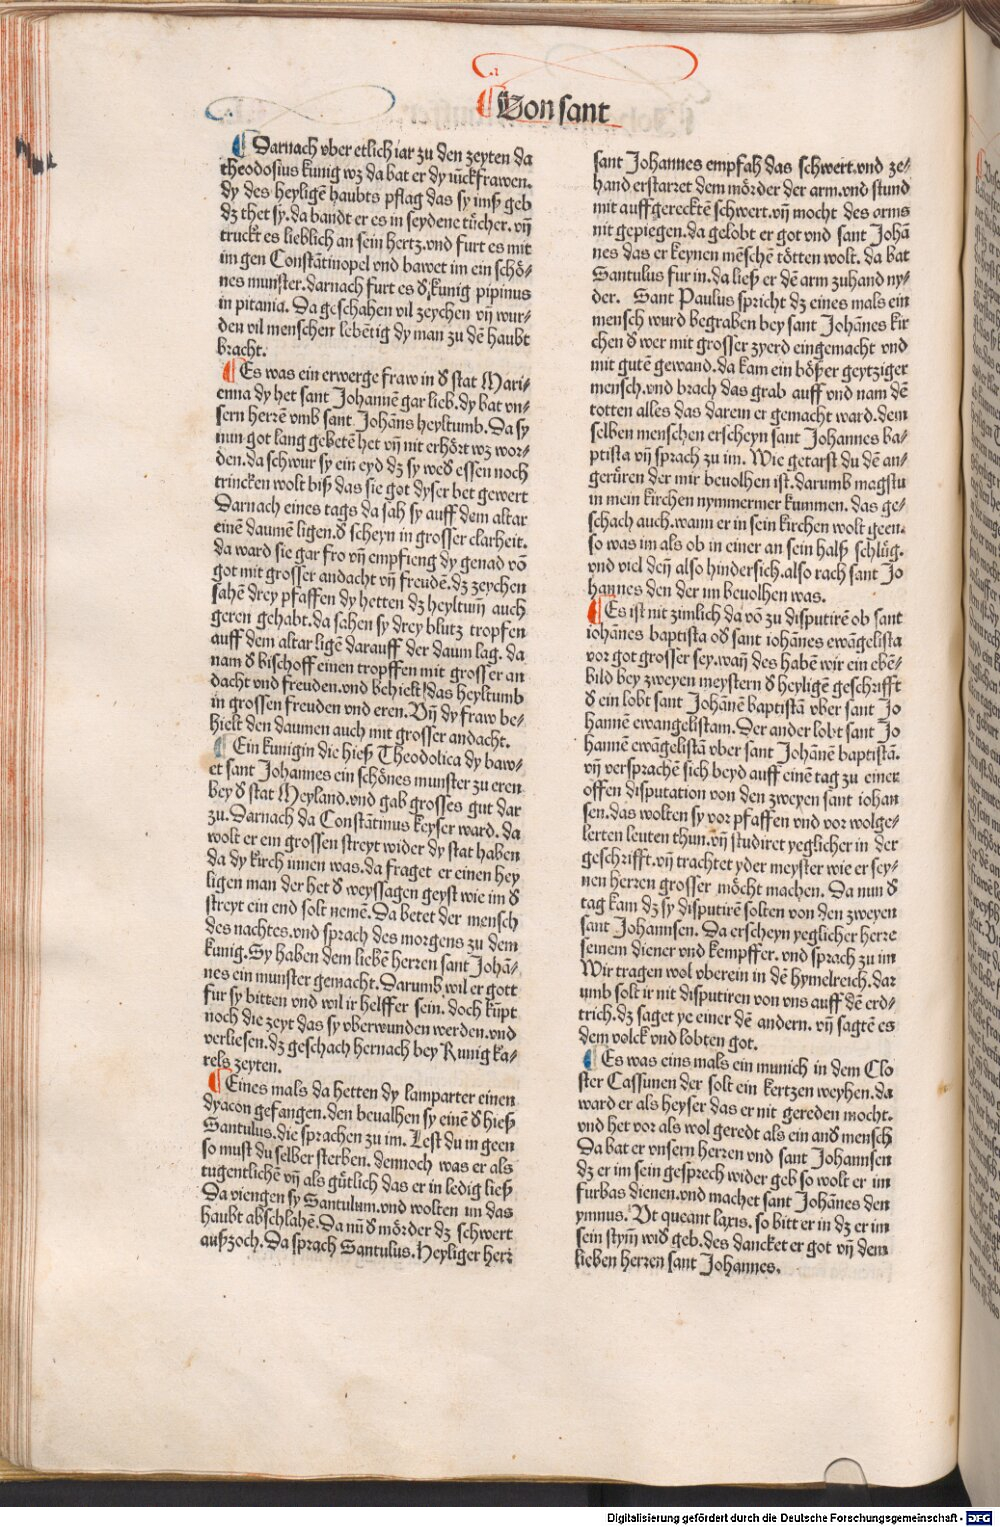 Von sant
Darnach vber etlich iar zu den zeyten da
theodosius kunig wz da bat er dy iũckfrawen.
dy des heyligẽ haubts pflag das sy imß geb
dz thet sy. da bandt er es in seydene tücher. vñ
truckt es lieblich an sein hertz. vnd furt es mit
im gen Constãtinopel vnd bawet im ein schö⸗
nes munster. darnach furt es d kunig pipinus
in pitania. Da geschahen vil zeychen vñ wur⸗
den vil menschen lebẽtig dy man zu dẽ haubt
bracht.
Es was ein erwerge fraw in d stat Mari⸗
enna dy het sant Johannẽ gar lieb. dy bat vn⸗
sern herrẽ vmb sant Johãns heyltumb. Da sy
nun got lang gebetẽ het vñ nit erhört wz wor⸗
den. da schwur sy ein eyd dz sy wed essen noch
trincken wolt biß das sie got dyser bet gewert
Darnach eines tags da sah sy auff dem altar
einẽ daumẽ ligen. d scheyn in grosser clarheit.
da ward sie gar fro vñ empfieng dy genad võ
got mit grosser andacht vñ freudẽ. dz zeychen
sahẽ drey pfaffen dy hetten dz heyltum̃ auch
geren gehabt. da sahen sy drey blutz tropfen
auff dem altar ligẽ darauff der daum lag. da
nam d bischoff einen tropffen mit grosser an
dacht vnd freuden. vnd behielt das heyltumb
in grossen freuden vnd eren. Vñ dy fraw be⸗
hielt den daumen auch mit grosser andacht.
Ein kunigin die hieß Theodolica dy baw⸗
et sant Johannes ein schönes munster zu eren
bey d stat Meyland. vnd gab grosses gut dar
zu. Darnach da Constãtinus keyser ward. da
wolt er ein grossen streyt wider dy stat haben
da dy kirch innen was. da fraget er einen hey
ligen man der het d weyssagen geyst wie im d
streyt ein end solt nemẽ. Da betet der mensch
des nachtes. vnd sprach des morgens zu dem
kunig. Sy haben dem liebẽ herren sant Johã⸗
nes ein munster gemacht. Darumb wil er gott
fur sy bitten vnd wil ir helffer sein. doch kũpt
noch die zeyt das sy vberwunden werden. vnd
verliesen. dz geschach hernach bey Kunig ka⸗
rels zeyten.
Eines mals da hetten dy lamparter einen
dyacon gefangen. den beualhen sy einẽ d hieß
Santulus. die sprachen zu im. Lest du in geen
so must du selber sterben. dennoch was er als
tugentlichẽ vñ als gütlich das er in ledig ließ
Da viengen sy Santulum. vnd wolten im das
haubt abschlahẽ. Da nũ d mörder dz schwert
außzoch. Da sprach Santulus. Heyliger herr
sant Johannes empfah das schwert. vnd ze⸗
hand erstarret dem mörder der arm. vnd stund
mit auffgerecktẽ schwert. vñ mocht des arms
nit gepiegen. da gelobt er got vnd sant Johã
nes das er keynen mẽschẽ tötten wolt. da bat
Santulus fur in. da ließ er dẽ arm zuhand ny⸗
der. Sant Paulus spricht dz eines mals ein
mensch wurd begraben bey sant Johãnes kir
chen d wer mit grosser zyerd eingemacht vnd
mit gutẽ gewand. da kam ein bößer geytziger
mensch. vnd brach das grab auff vnd nam dẽ
totten alles das darem er gemacht ward. dem
selben menschen erscheyn sant Johannes ba⸗
ptista vñ sprach zu im. Wie getarst du dẽ an⸗
gerüren der mir beuolhen ist. darumb magstu
in mein kirchen nymmermer kummen. das ge⸗
schach auch. wann er in sein kirchen wolt geen.
so was im als ob in einer an sein halß schlüg.
vnd viel deñ also hindersich. also rach sant Jo
hannes den der im beuolhen was.
Es ist nit zimlich da võ zu disputirẽ ob sant
iohãnes baptista od sant iohãnes ewãgelista
vor got grosser sey. wañ des habẽ wir ein ebẽ⸗
bild bey zweyen meystern d heyligẽ geschrifft
d ein lobt sant Johãnẽ baptistã vber sant Jo
hannẽ ewangelistam. Der ander lobt sant Jo
hannẽ ewãgelistã vber sant Johãnẽ baptistã.
vñ versprachẽ sich beyd auff einẽ tag zu einer
offen disputation von den zweyen sant iohan
sen. das wolten sy vor pfaffen vnd vor wolge⸗
lerten leuten thun. vñ studiret yeglicher in der
geschrifft. vñ trachtet yder meyster wie er sey⸗
nen herren grosser möcht machen. Da nun d
tag kam dz sy disputirẽ solten von den zweyen
sant Johannsen. Da erscheyn yeglicher herre
seinem diener vnd kempffer. vnd sprach zu im
Wir tragen wol vberein in dẽ hymelreich. dar
umb solt ir nit disputiren von vns auff dẽ erd⸗
trich. dz saget ye einer dẽ andern. vñ sagtẽ es
dem volck vnd lobten got.
Es was eins mals ein munich in dem Clo
ster Cassunen der solt ein kertzen weyhen. da
ward er als heyser das er nit gereden mocht.
vnd het vor als wol geredt als ein and mensch
Da bat er vnsern herren vnd sant Johannsen
dz er im sein gesprech wider geb so wolt er im
furbas dienen. vnd machet sant Johãnes den
ymnus. Vt queant laxis. so bitt er in dz er im
sein stym̃ wid geb. des dancket er got vñ dem
lieben herren sant Johannes.
Digitalisierung gefördert durch die Deutsche Forschungsgemeinschaft - DFG